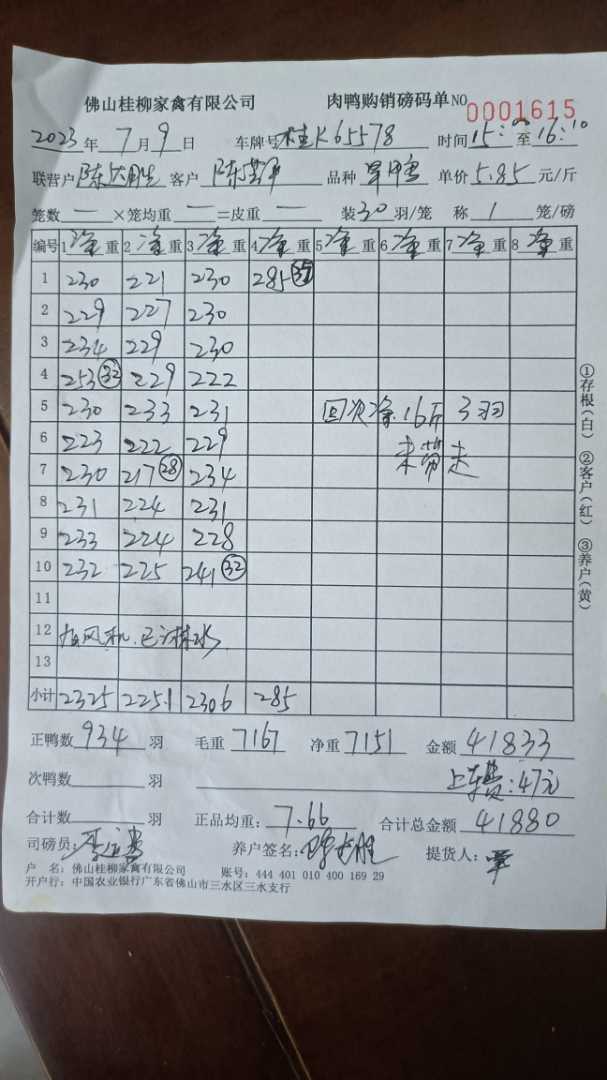 佛山桂柳家禽有限公司 肉鸭购销磅码单 NO 0001615
2023年7月9日 车牌号 桂K65578 时间15:00至16:10
联营户 陈大胜 客户 陈 品种 单价 5.85 元/斤
笼数 — ×笼均重 — =皮重 — 装30羽/笼 称 1 笼/磅
编号 1净重 2净重 3净重 4净重 5净重 6净重 7净重 8净重
1 230 221 230 285
2 229 227 230
3 234 229 230
4 253(32) 229 222
5 230 233 231 回次净16斤 3羽
6 223 222 229 未带走
7 230 217(28) 234
8 231 224 231
9 233 224 228
10 232 225 241(32)
11
12 风机.已 水
13
小计 2325 2251 2306 285
正鸭数 934 羽 毛重 7167 净重 7151 金额 41833
次鸭数 羽 上车费:47元
合计数 羽 正品均重: 7.66 合计总金额 41880
司磅员: 养户签名: 陈大胜 提货人:
户 名: 佛山桂柳家禽有限公司 账号: 444 401 010 400 169 29
开户行: 中国农业银行广东省佛山市三水区三水支行
①存根(白) ②客户(红) ③养户(黄)